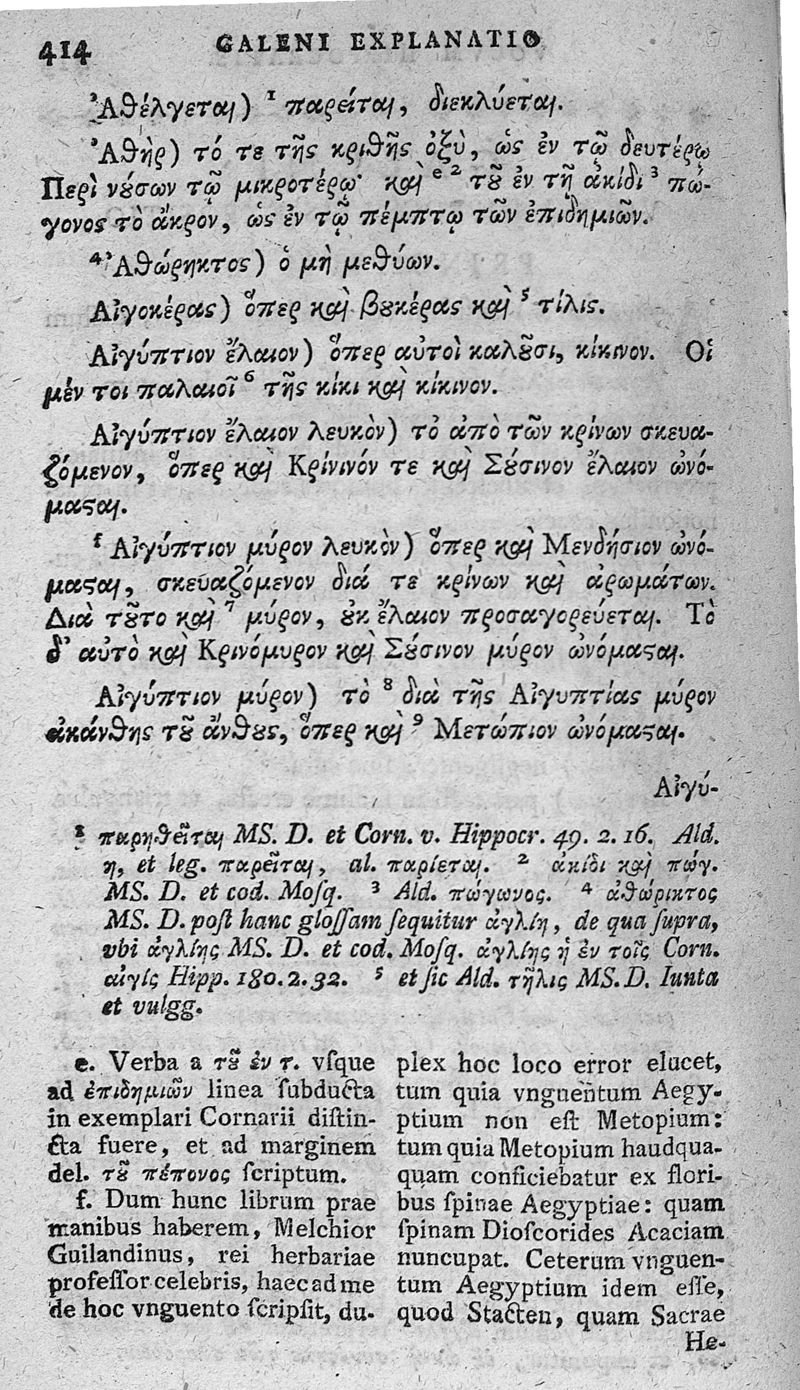 414 GALENI EXPLANATIO
Ἀθέλγεται) ¹ παρείται, διεκλύεται.
Ἀθὴρ) τό τε τῆς κριθῆς ὀξὺ, ὡς ἐν τῷ δευτέρῳ
Περὶ νȣ́σων τῷ μικροτέρῳ· καὶ ᵉ ² τȣ͂ ἐν τῇ ἀκίδι ³ πώ-
γονος τὸ ἄκρον, ὡς ἐν τῷ πέμπτῳ τῶν ἐπιδημιῶν.
⁴ Ἀθώρηκτος) ὁ μὴ μεθύων.
Αἰγοκέρας) ὅπερ καὶ βȣκέρας καὶ ⁵ τίλις.
Αἰγύπτιον ἔλαιον) ὅπερ αὐτοὶ καλȣ͂σι, κίκινον. Οἱ
μέν τοι παλαιοῖ ⁶ τῆς κίκι καὶ κίκινον.
Αἰγύπτιον ἔλαιον λευκὸν) τὸ ἀπὸ τῶν κρίνων σκευα-
ζόμενον, ὅπερ καὶ Κρίνινόν τε καὶ Σȣ́σινον ἔλαιον ὠνό-
μαϛαι.
ᶠ Αἰγύπτιον μύρον λευκὸν) ὅπερ καὶ Μενδήσιον ὠνό-
μαϛαι, σκευαζόμενον διά τε κρίνων καὶ ἀρωμάτων.
Διὰ τȣ͂το καὶ ⁷ μύρον, ȣ̓κ ἔλαιον προσαγορεύεται. Τὸ
δ' αὐτὸ καὶ Κρινόμυρον καὶ Σȣ́σινον μύρον ὠνόμαϛαι.
Αἰγύπτιον μύρον) τὸ ⁸ διὰ τῆς Αἰγυπτίας μύρον
ἀκάνθης τȣ͂ ἄνθȣς, ὅπερ καὶ ⁹ Μετώπιον ὠνόμαϛαι.
Αἰγύ-
¹ παρηθεῖται MS. D. et Corn. v. Hippocr. 49. 2. 16. Ald.
η, et leg. παρεῖται, al. παρίεται. ² ἀκίδι καὶ πώγ.
MS. D. et cod. Moſq. ³ Ald. πώγωνος. ⁴ ἀθώρικτος
MS. D. poſt hanc gloſſam ſequitur ἀγλίη, de qua ſupra,
vbi ἀγλίης MS. D. et cod. Moſq. ἀγλίης ἡ ἐν τοῖς Corn.
αἰγίς Hipp. 180. 2. 32. ⁵ et ſic Ald. τῆλις MS. D. Iunta
et vulgg.
e. Verba a τȣ͂ ἐν τ. vſque
ad ἐπιδημιῶν linea ſubducta
in exemplari Cornarii diſtin-
cta fuere, et ad marginem
del. τȣ͂ πέπονος ſcriptum.
f. Dum hunc librum prae
manibus haberem, Melchior
Guilandinus, rei herbariae
profeſſor celebris, haec ad me
de hoc vnguento ſcripſit, du-
plex hoc loco error elucet,
tum quia vnguentum Aegy-
ptium non eſt Metopium:
tum quia Metopium haudqua-
quam conficiebatur ex flori-
bus ſpinae Aegyptiae: quam
ſpinam Dioſcorides Acaciam
nuncupat. Ceterum vnguen-
tum Aegyptium idem eſſe,
quod Stacten, quam Sacrae
He-